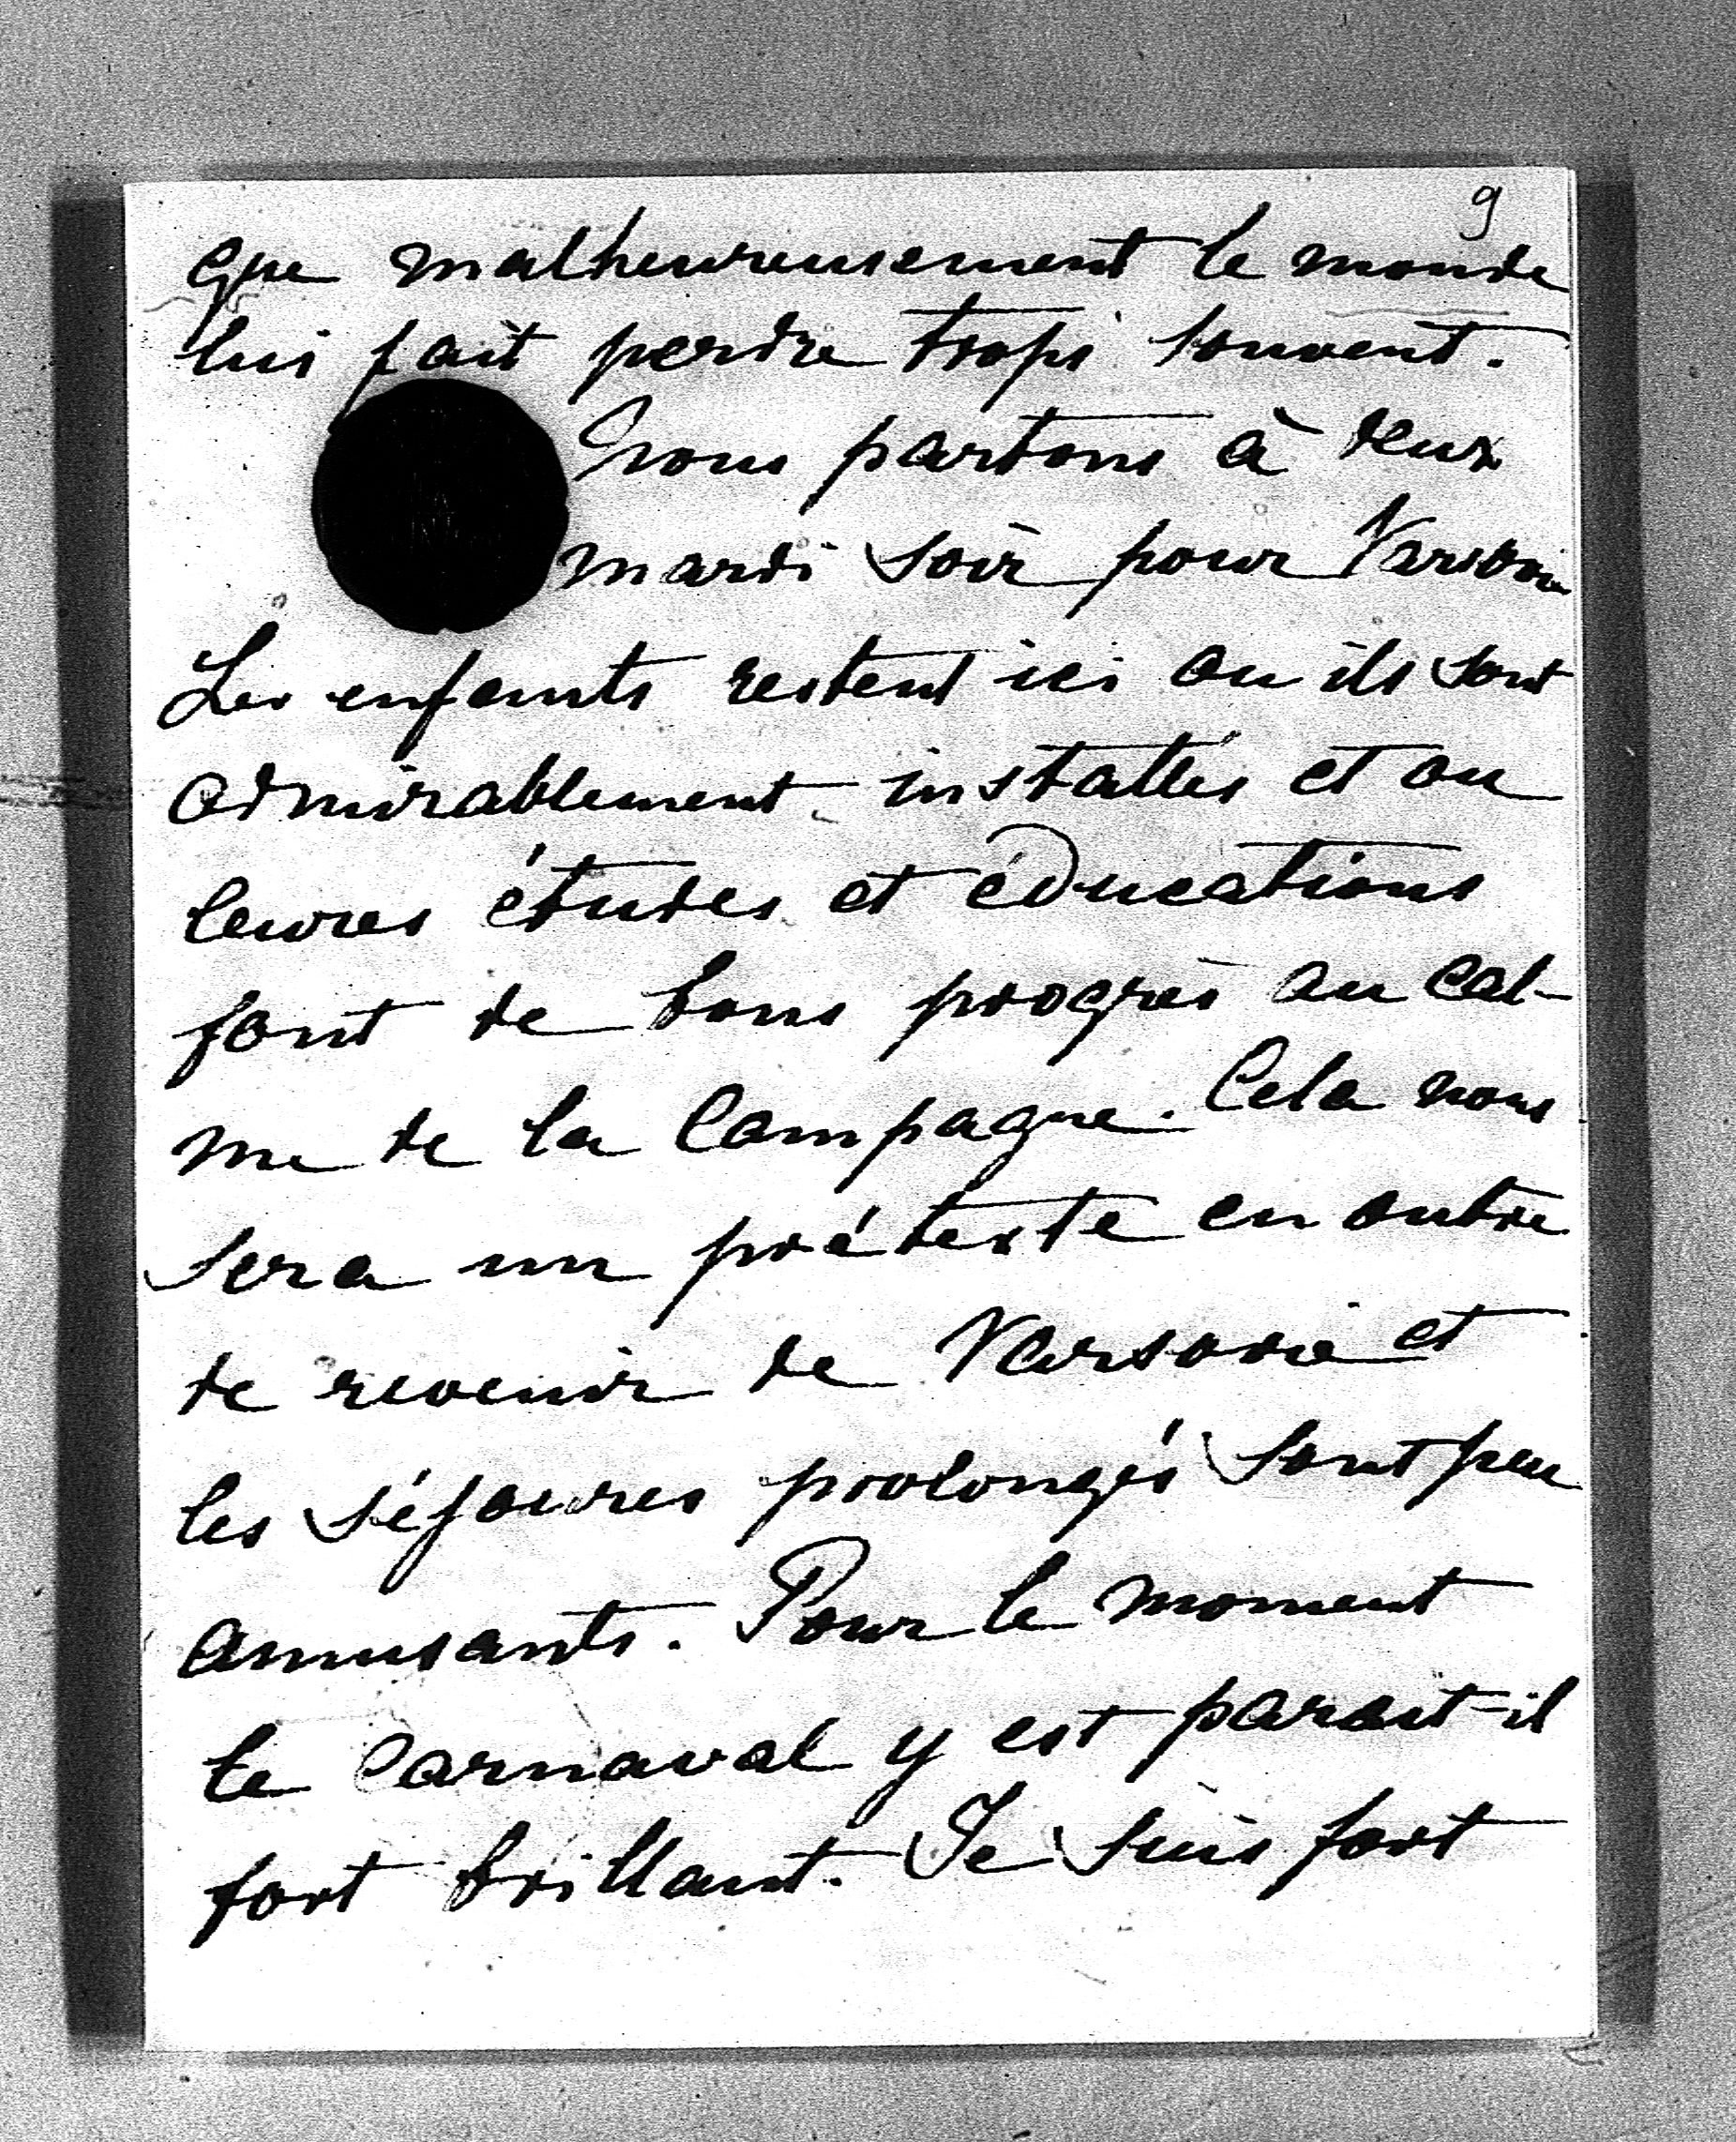 9
que malheureusement le monde
lui fait perdre trop souvent.
Nous partons à deux
mardi soir pour Varsovie
Les enfants restent ici ou ils sont
admirablement installés et ou
leures études et éducations
font de bons progrès au cal-
me de la Campagne. Cela nous
sera un prétexte en outre
de revenir de Varsovie et
les séjoures prolongés sont peu
amusants. Pour le moment
le Carnaval y est parait-il
fort brillant. Je suis fort